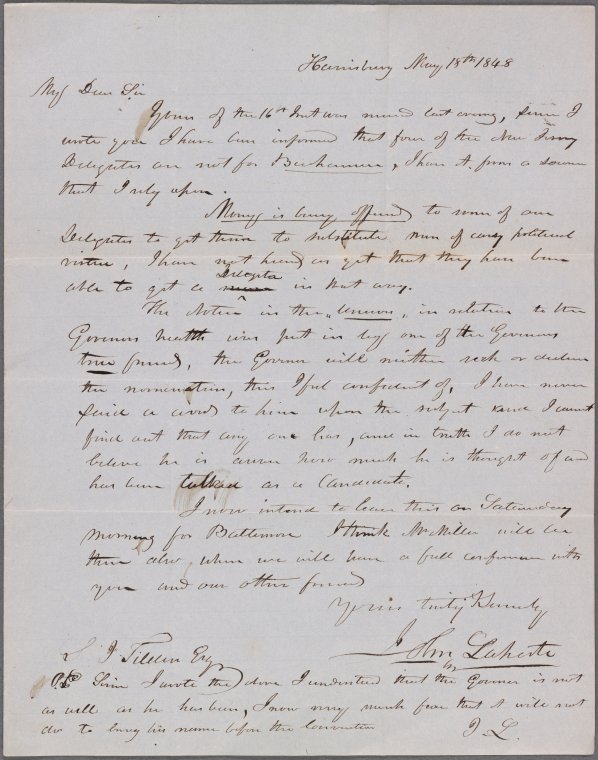 Harrisburg May 18th 1848
My Dear Sir
Yours of the 16th Inst was received last evening, Since I
wrote you I have been informed that four of the New Jersey
Delegates are not for Buchanan, I have it from a source
that I rely upon.
Money is being offered to some of our
Delegates to get them to substitute men of easy political
virtue, I have not heard as yet that they have been
able to get a Delegate in that way.
The Notice in the "Union" in relation to the
Governors health was put in by one of the Governors
true friends, the Governor will neither seek or decline
the nomination, this I feel confident of, I have never
said a word to him upon the subject and I cannot
find out that any one has, and in truth I do not
believe he is aware how much he is thought of and
has been talked as a Candidate.
I now intend to leave this on Saturday
morning for Baltimore I think Mr Miller will be
there also, when we will have a full conference with
you and our other friend
Yours truly &
S J Tilden Esq
P.S. Since I wrote the above I understand that the Governor is not
as well as he has been, I now very much fear that it will not
do to bring his name before the Convention
J L.